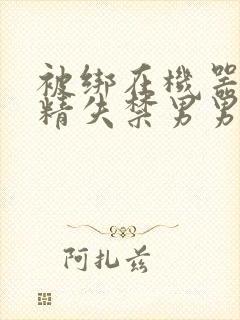 被绑在機器
精失禁男男
阿扎兹